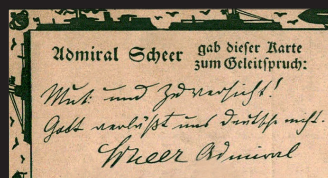 Admiral Scheer gab dieser Karte
zum Geleitspruch:
Mut und Zuversicht!
Gott verläßt uns Deutsche nicht.
Scheer Admiral